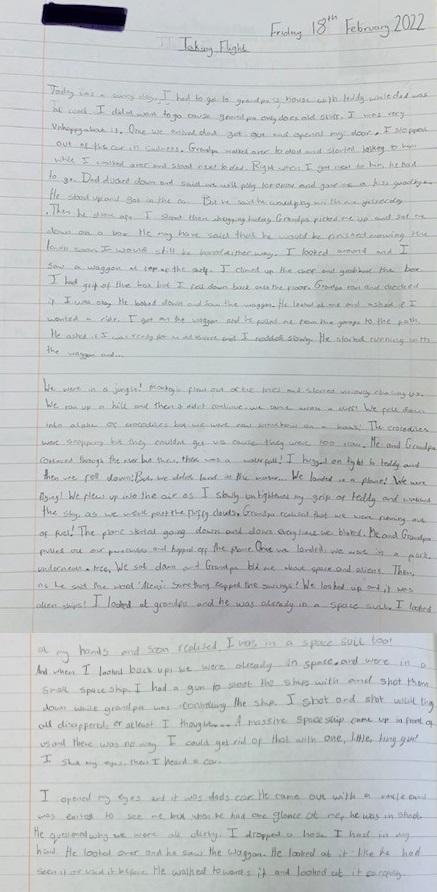 Friday 18th February 2022
Taking Flight
Today was a sunny day. I had to go to grandpa's house with teddy while dad was
at work. I didnt want to go cause grandpa only does old stuff. I was very
unhappy about it. Once we arrived dad got out and opened my door. I stepped
out of the car in sadness. Grandpa walked over to dad and started talking to him
while I walked over and stood next to dad. Right when I got next to him, he had
to go. Dad ducked down and said we will play and gave me a kiss goodbye.
He stood up and got in the car. But he said he would play with me
Then he drove off. I stood there hugging teddy. Grandpa picked me up and sat me
down on a box. He may have said that he would be finished mowing the
lawn soon I would still be bored either way. I looked around and I
saw a waggon at top of the shelf. I climed up the and grabbed the box
I had grip of the box but I fell down back onto the floor. Grandpa ran and checked
if I was okay. He looked down and saw the waggon. He looked at me and asked if I
wanted a ride. I got on the waggon and he pulled me from the garage to the path.
He asked if I was ready for an adventure and I nodded slowly. He started running with
the waggon and...
We were in a jungle! Monkeys flew out of the trees and started chasing us.
We ran up a hill and then it didnt continue. we came across a river! We fell down
into alota crocodiles but we were now somehow on a boat! The crocodiles
were snapping but they couldnt get us cause they were too slow. Me and Grandpa
continued through the river but then, there was a waterfall! I hugged on tight to teddy and
then we fell down! But, we didnt land in the water. We landed in a plane! We were
flying! We flew up into the air as I slowly untightened my grip of teddy and watched
the sky, as we went past the fluffy clouds. Grandpa realised that we were running out
of fuel! The plane started going down and down everytime we blinked. Me and Grandpa
pulled out our parachutes and hopped off the plane. Once we landed, we were in a park
underneath a tree. We sat down and Grandpa told me about space and aliens. Then,
as he said the word 'Alien', something zapped the swings! We looked up and it was
alien ships! I looked at grandpa and he was already in a space suit. I looked
at my hands and soon realised, I was in a space suit too!
And when I looked back up, we were already in space and were in a
small space ship. I had a gun to shoot the ships with and shot them
down while grandpa was controlling the ship. I shot and shot until they
all disappeared, or atleast I thought.... A massive space ship came up in front of
us and there was no way I could get rid of that with one, little, tiny gun!
I shut my eyes, then I heard a car.
I opened my eyes and it was dads car. He came out with a and
was exited to see me but when he had one glance at me, he was in shock.
He questioned why we were all dirty. I dropped a hose I had in my
hand. He looked over and he saw the waggon. He looked at it like he had
seen it or used it before. He walked towards it and looked at it